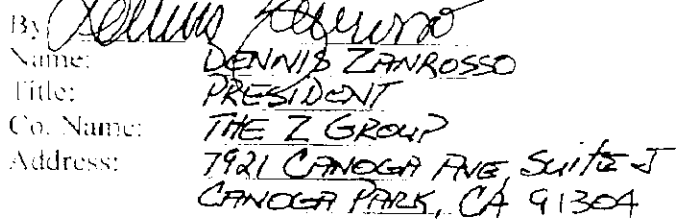 By
Name: DENNIS ZANROSSO
Title: PRESIDENT
Co. Name: THE Z GROUP
Address: 7921 CANOGA AVE, Suite J
CANOGA PARK, CA 91304